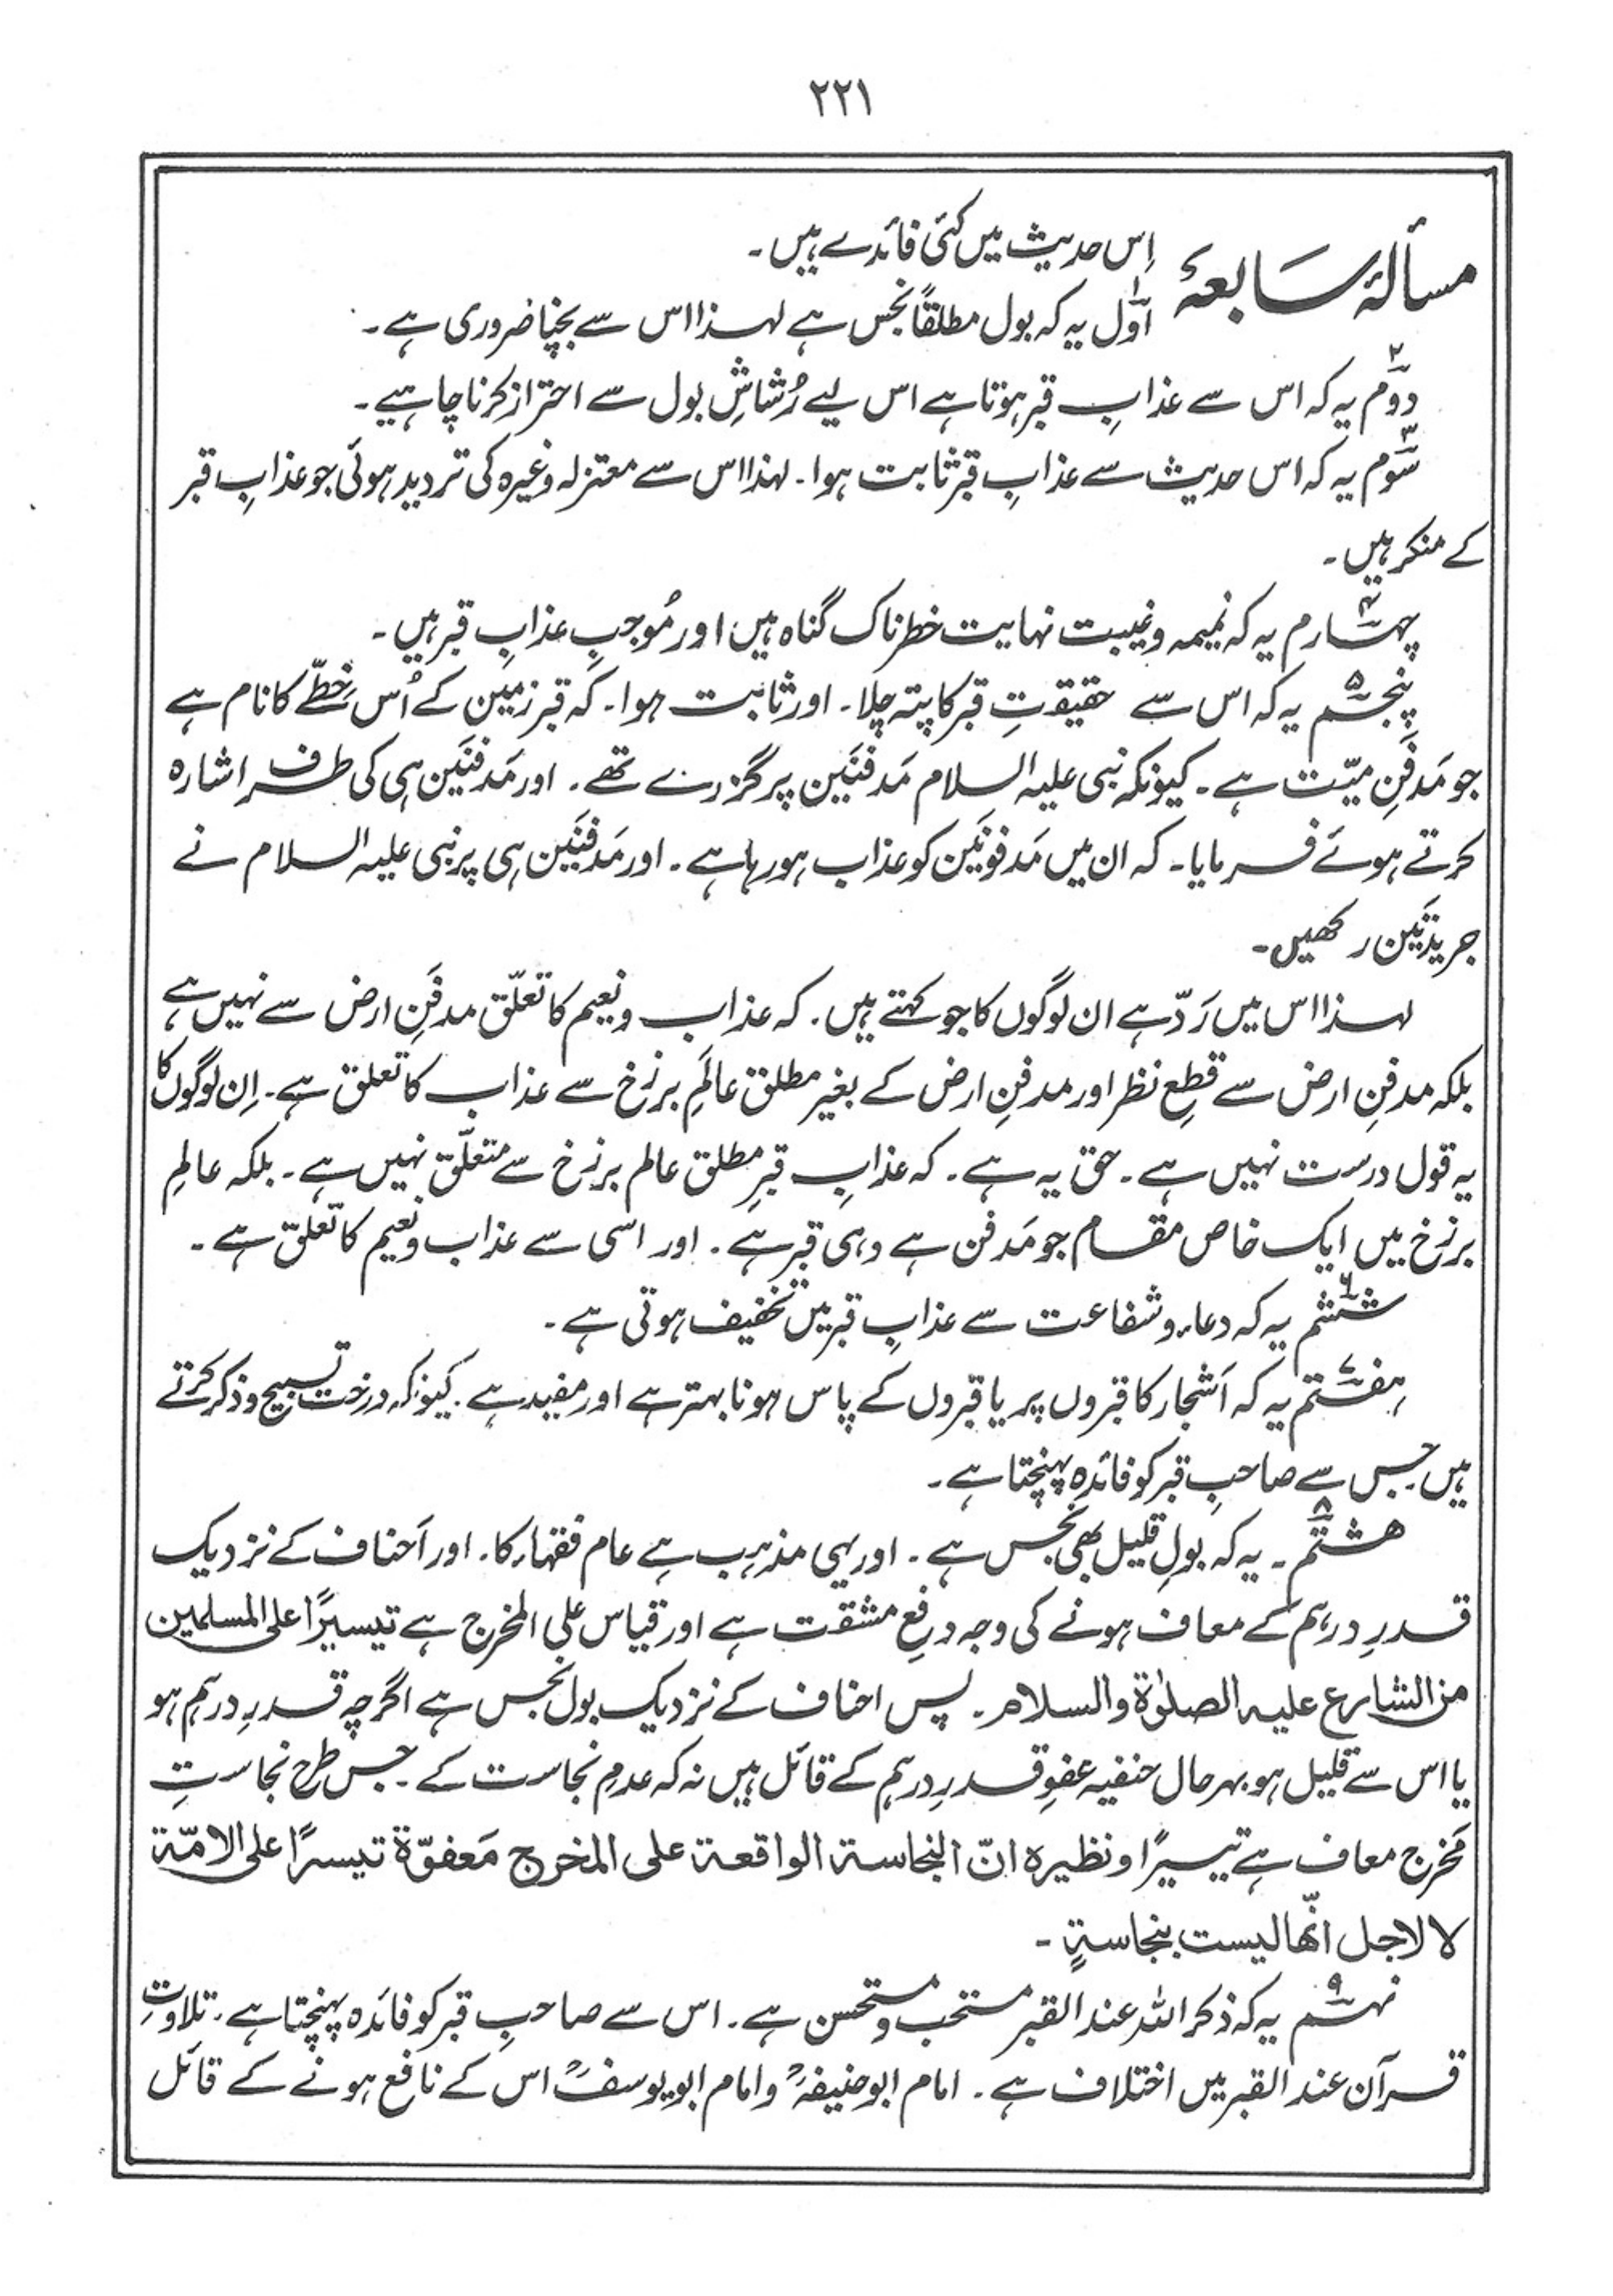 ۲۲۱
مسألۂ سَابعۂ اِس حدیث میں کئی فائدے ہیں۔
اوّل یہ کہ بول مطلقًا نجس ہے لہٰذا اس سے بچنا ضروری ہے۔
۲ دوّم یہ کہ اس سے عذابِ قبر ہوتا ہے اس لیے رُشاشِ بول سے احتراز کرنا چاہیے۔
۳ سوّم یہ کہ اس حدیث سے عذابِ قبر ثابت ہوا۔ لہذا اس سے معتزلہ وغیرہ کی تردید ہوئی جو عذابِ قبر
کے منکر ہیں۔
۴ چہارم یہ کہ نمیمہ و غیبت نہایت خطرناک گناہ ہیں اور مُوجبِ عذابِ قبر ہیں۔
۵ پنجم یہ کہ اس سے حقیقتِ قبر کا پتہ چلا۔ اور ثابت ہوا۔ کہ قبر زمین کے اُس خِطّے کا نام ہے
جو مَدفَنِ میّت ہے۔ کیونکہ نبی علیہ السلام مَدفنَین پر گزرے تھے۔ اور مَدفنَین ہی کی طرف اشارہ
کرتے ہوئے فرمایا۔ کہ ان میں مَدفونَین کو عذاب ہو رہا ہے۔ اور مَدفنَین ہی پر نبی علیہ السلام نے
جریدتَین رکھیں۔
لہٰذا اس میں رَدّ ہے ان لوگوں کا جو کہتے ہیں۔ کہ عذاب و نعیم کا تعلّق مدفَنِ ارض سے نہیں ہے
بلکہ مدفنِ ارض سے قطعِ نظر اور مدفنِ ارض کے بغیر مطلق عالَمِ برزخ سے عذاب کا تعلق ہے۔ اِن لوگوں کا
یہ قول درست نہیں ہے۔ حق یہ ہے۔ کہ عذابِ قبرِ مطلق عالم برزخ سے متعلّق نہیں ہے۔ بلکہ عالمِ
برزخ میں ایک خاص مقام جو مَدفن ہے وہی قبر ہے۔ اور اسی سے عذاب و نعیم کا تعلق ہے۔
۶ ششم یہ کہ دعاء و شفاعت سے عذابِ قبر میں تخفیف ہوتی ہے۔
۷ ہفتم یہ کہ اَشجار کا قبروں پر یا قبروں کے پاس ہونا بہتر ہے اور مفید ہے۔ کیونکہ درخت تسبیح و ذکر کرتے
ہیں جس سے صاحبِ قبر کو فائدہ پہنچتا ہے۔
۸ ہشتم۔ یہ کہ بولِ قلیل بھی نجس ہے۔ اور یہی مذہب ہے عام فقہاء کا۔ اور اَحناف کے نزدیک
قدرِ درہم کے معاف ہونے کی وجہ دفعِ مشقت ہے اور قیاس علی المخرج ہے تیسیرًا علی المسلمین
من الشارع علیہ الصلوٰۃ والسلام۔ پس احناف کے نزدیک بول نجس ہے اگرچہ قدرِ درہم ہو
یا اس سے قلیل ہو بہرحال حنفیہ عفوِ قدرِ درہم کے قائل ہیں نہ کہ عدمِ نجاست کے۔ جس طرح نجاستِ
مَخرج معاف ہے تیسیرًا و نظیرہ انّ النجاسۃ الواقعۃ علی المخرج مَعفوّۃ تیسرًا علی الامّۃ
لا لاجل انّھا لیست بنجاسۃٍ۔
۹ نہم یہ کہ ذکر اللہ عند القبر مستحب و مستحسن ہے۔ اس سے صاحبِ قبر کو فائدہ پہنچتا ہے۔ تلاوتِ
قرآن عند القبر میں اختلاف ہے۔ امام ابوحنیفہؒ و امام ابویوسفؒ اس کے نافع ہونے کے قائل